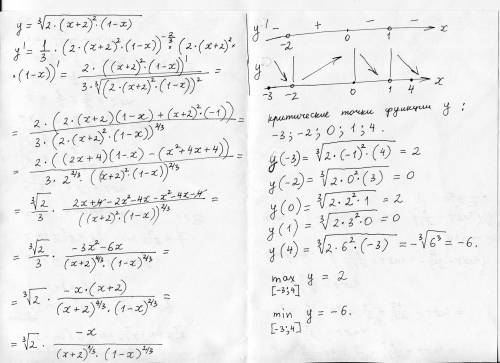 y = ∛(2·(x+2)²·(1-x))
y' = 1/3·(2·(x+2)²·(1-x))^(-2/3)·(2·(x+2)²·
·(1-x))' = 2·((x+2)²·(1-x))' / 3·∛(2·(x+2)²·(1-x))² =
= 2·(2·(x+2)(1-x)+(x+2)²·(-1)) / 3·(2·(x+2)²·(1-x))^(2/3) =
= 2·((2x+4)(1-x)-(x²+4x+4)) / 3·2^(2/3)·((x+2)²·(1-x))^(2/3) =
= ∛2/3 · 2x+4-2x²-4x-x²-4x-4 / ((x+2)²·(1-x))^(2/3) =
= ∛2/3 · -3x²-6x / (x+2)^(4/3)·(1-x)^(2/3) =
= ∛2 · -x·(x+2) / (x+2)^(4/3)·(1-x)^(2/3) =
= ∛2 · -x / (x+2)^(1/3)·(1-x)^(2/3)
y' - + - -
-2 0 1 x
y
-3 -2 0 1 4 x
критические точки функции y:
-3; -2; 0; 1; 4.
y(-3) = ∛(2·(-1)²·(4)) = 2
y(-2) = ∛(2·0²·(3)) = 0
y(0) = ∛(2·2²·1) = 2
y(1) = ∛(2·3²·0) = 0
y(4) = ∛(2·6²·(-3)) = -∛6³ = -6.
max y = 2
[-3;4]
min y = -6.
[-3;4]